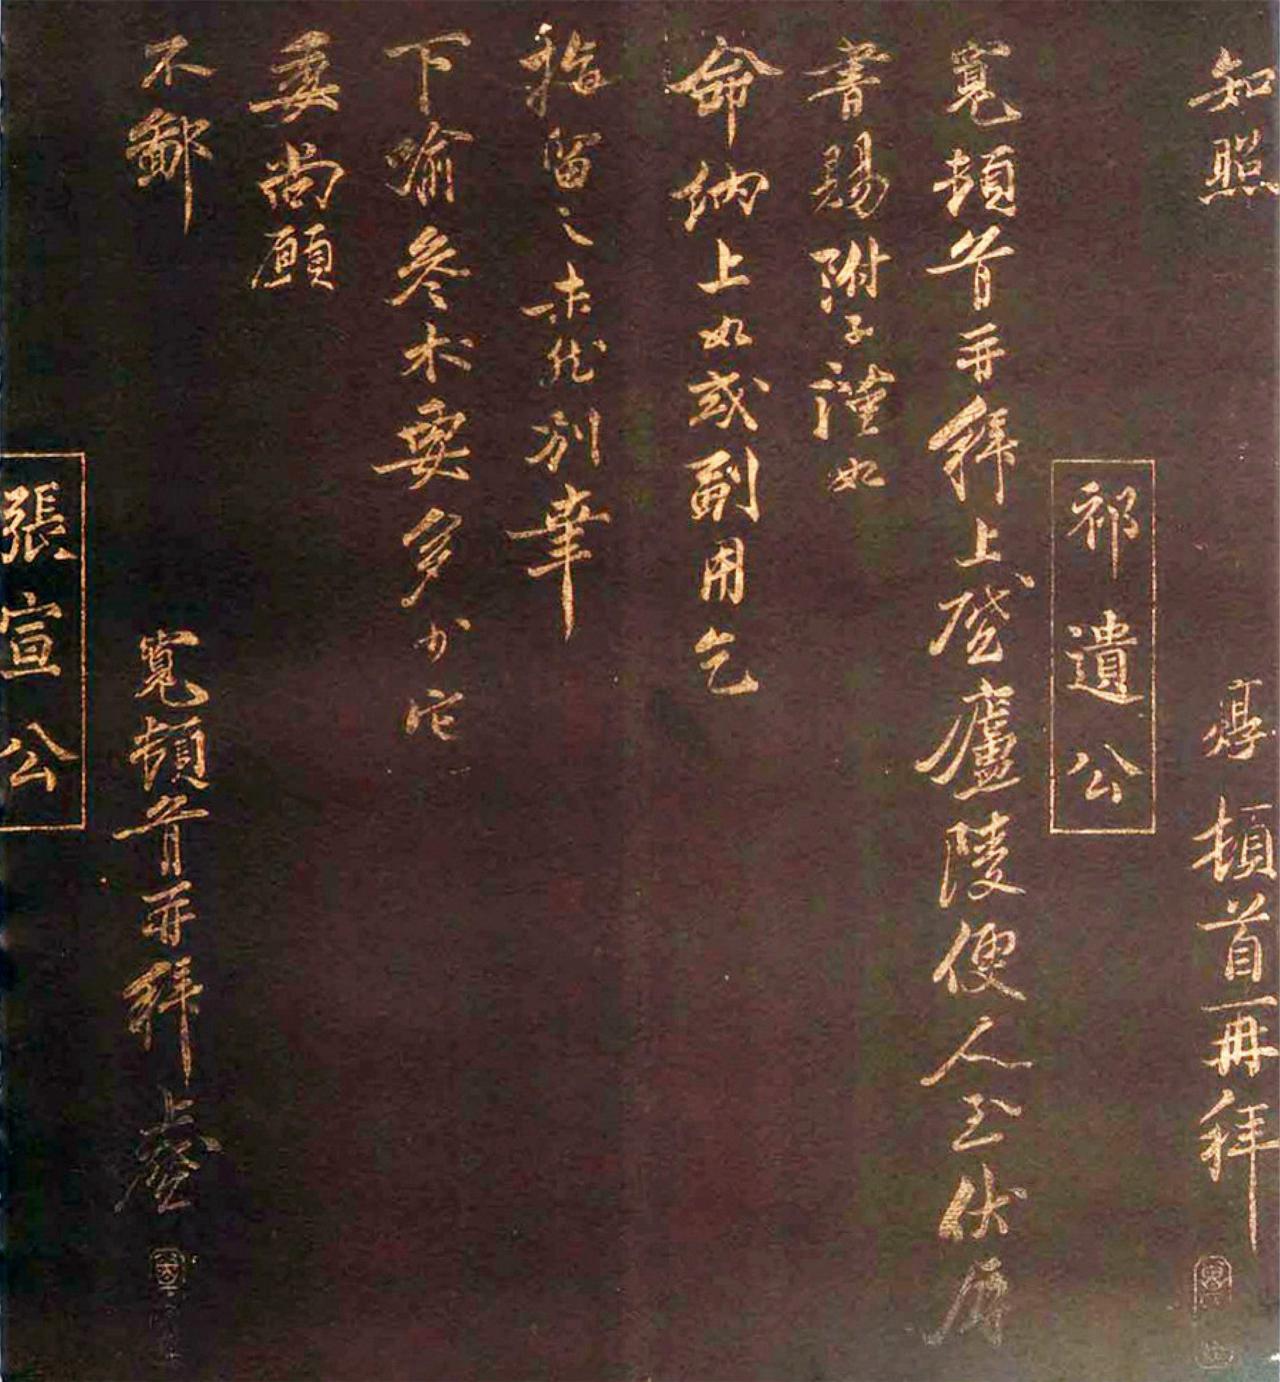 知照
焞頓首再拜
祁遺公
寬頓首再拜上啓廬陵便人至伏辱
書賜附子謹如
命納上如或副用乞
輟留之未然別幸
下喻參朮要多少它
委尚願
不鄙
寬頓首再拜上啓
張宣公